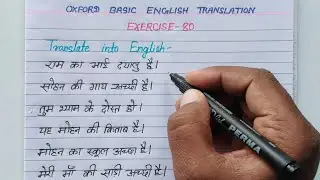 OXFORD BASIC ENGLISH TRANSLATION
EXERCISE-80
Translate into English-
राम का भाई दयालु है।
सोहन की गाय अच्छी है।
तुम श्याम के दोस्त हो।
यह मोहन की किताब है।
मोहन का स्कूल अच्छा है।
मेरी माँ की साड़ी अच्छी है।
PERMA